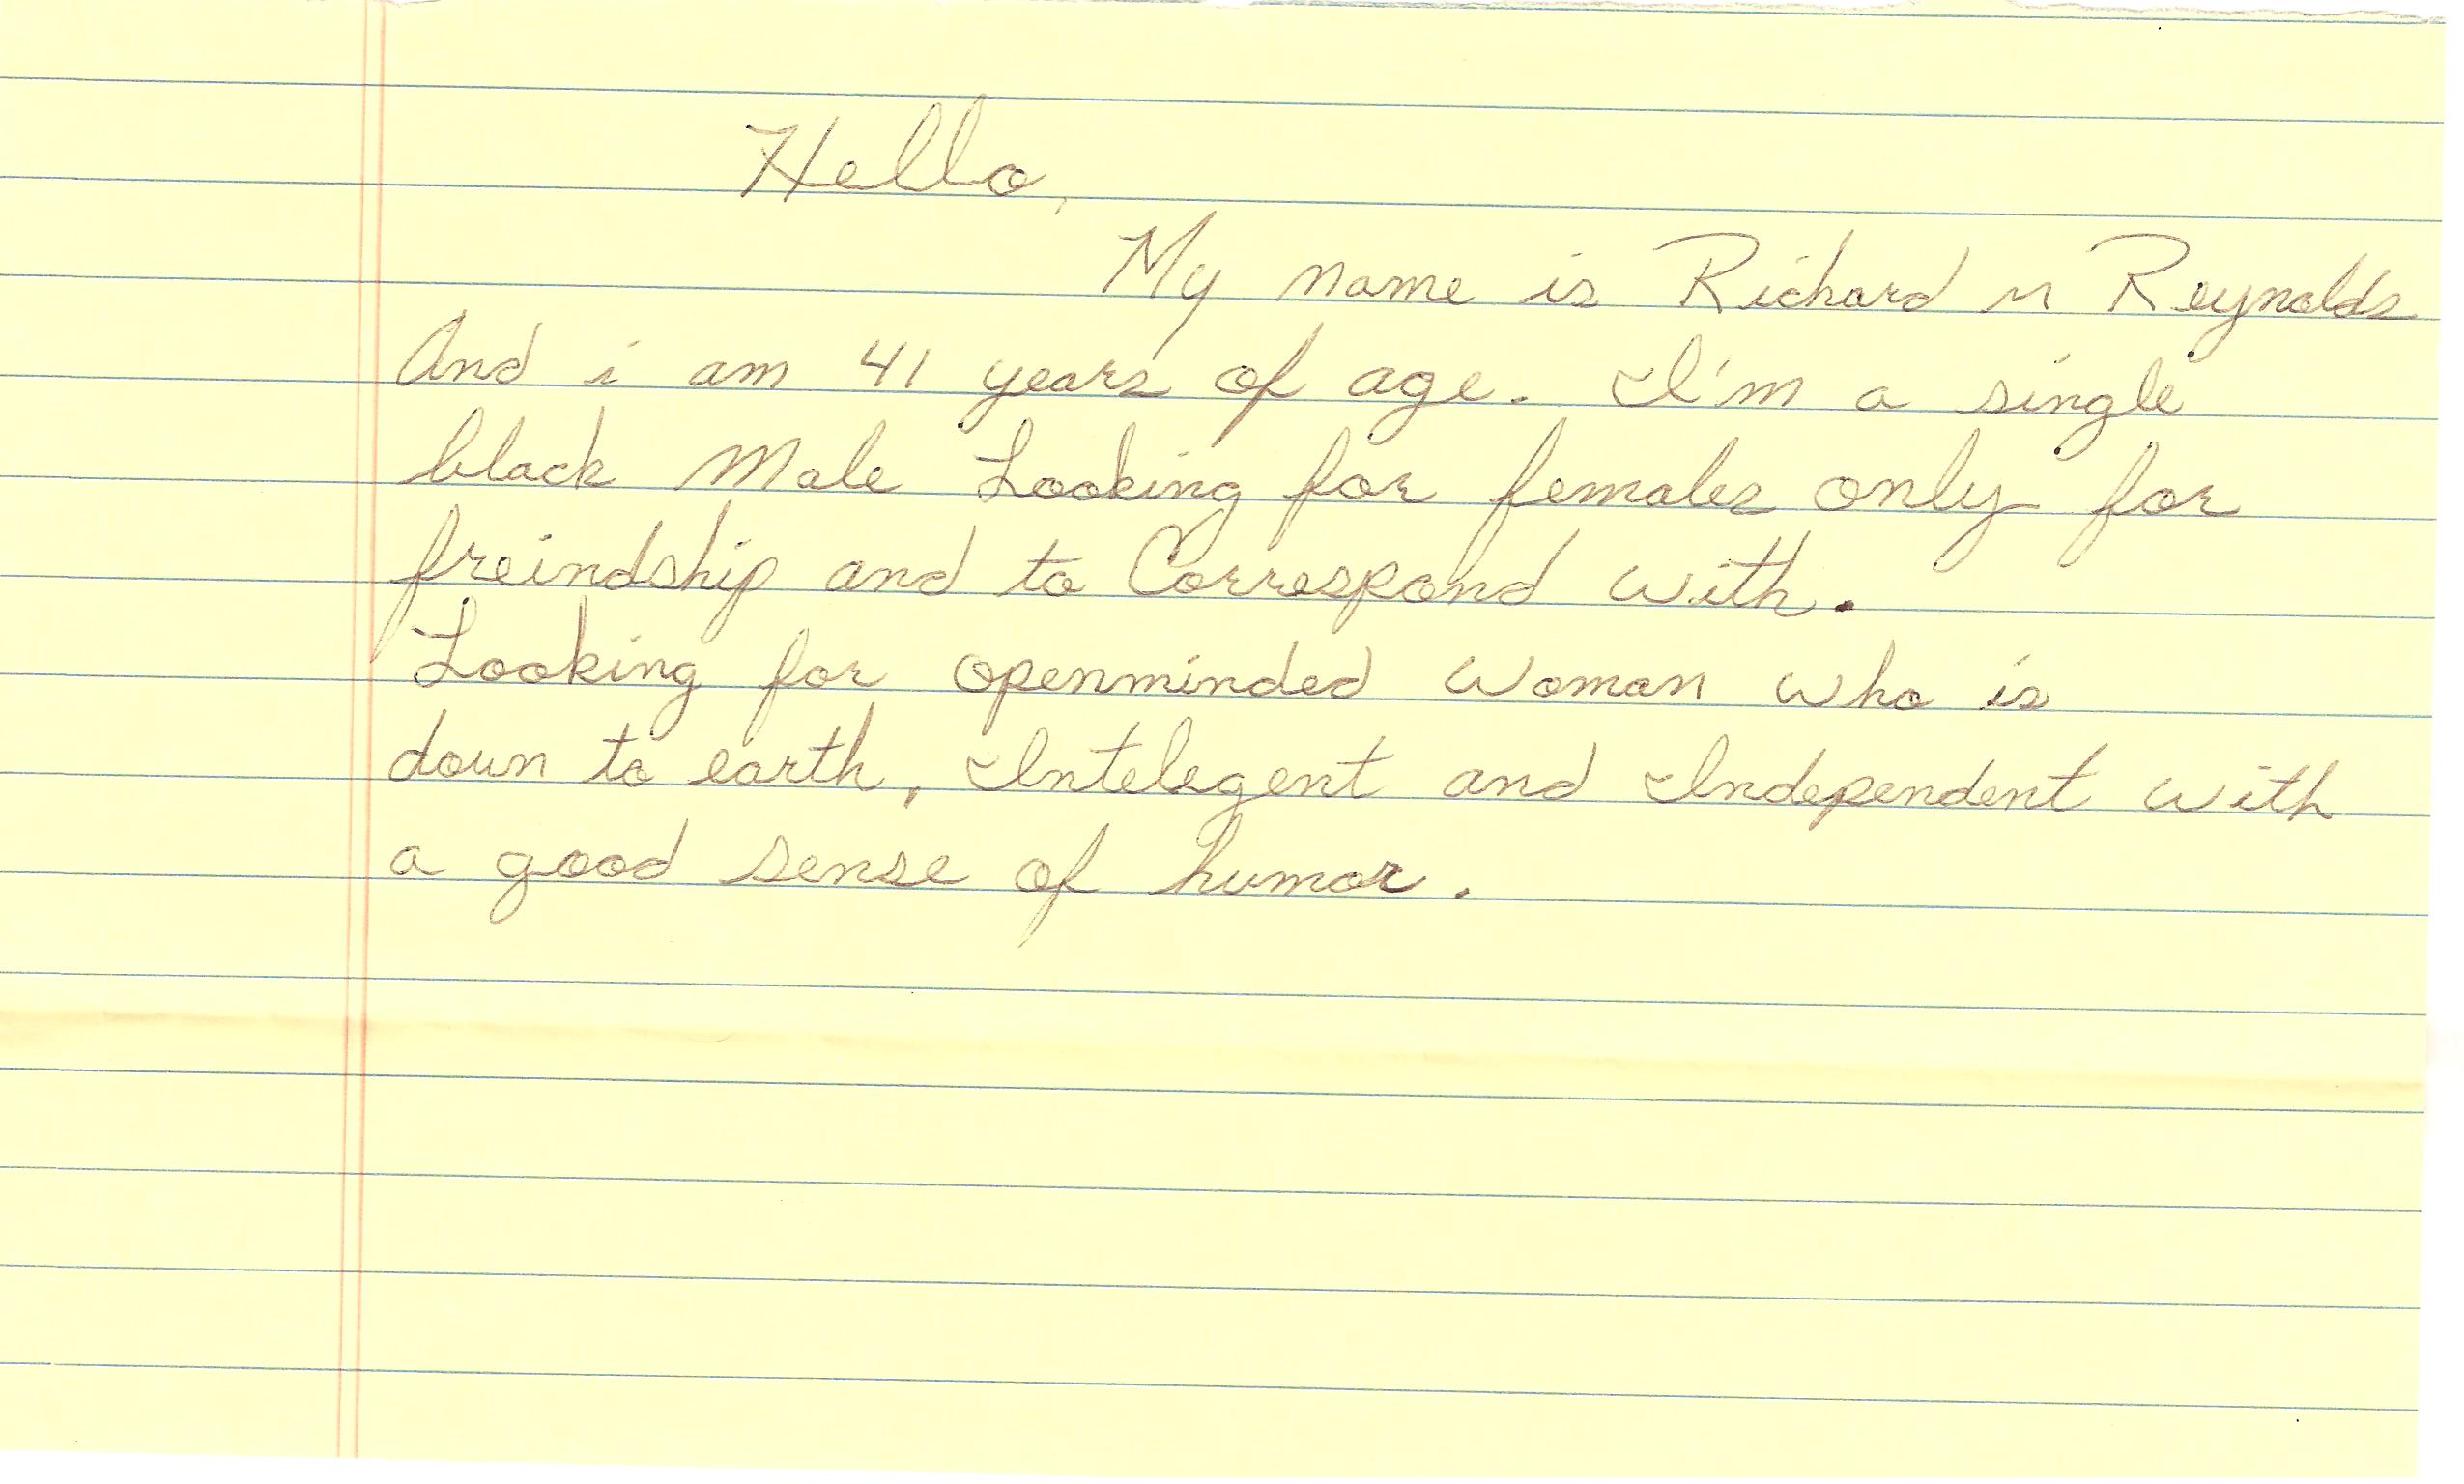 Hello,
My name is Richard M Reynolds
And i am 41 years of age. I'm a single
black Male Looking for females only for
freindship and to Correspond with.
Looking for openminded woman who is
down to earth, Intelegent and Independent with
a good sense of humor.